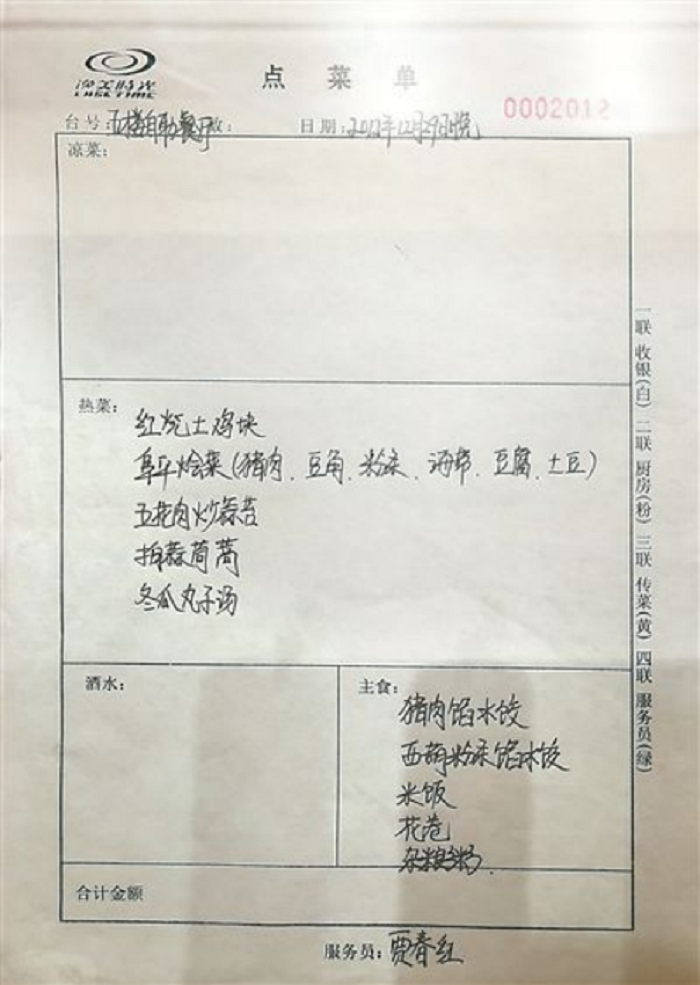 渔美時光
LAKE TIME
点菜单
0002012
台号：五楼自助餐厅 数：
日期：2012年12月29日晚
凉菜：
热菜：
红烧土鸡块
阜平烩菜(猪肉、豆角、粉条、海带、豆腐、土豆)
五花肉炒蒜苔
拍蒜茼蒿
冬瓜丸子汤
酒水：
主食：
猪肉馅水饺
西葫粉条馅水饺
米饭
花卷
杂粮粥
合计金额
服务员：贾春红
一联 收银(白) 二联 厨房(粉) 三联 传菜(黄) 四联 服务员(绿)